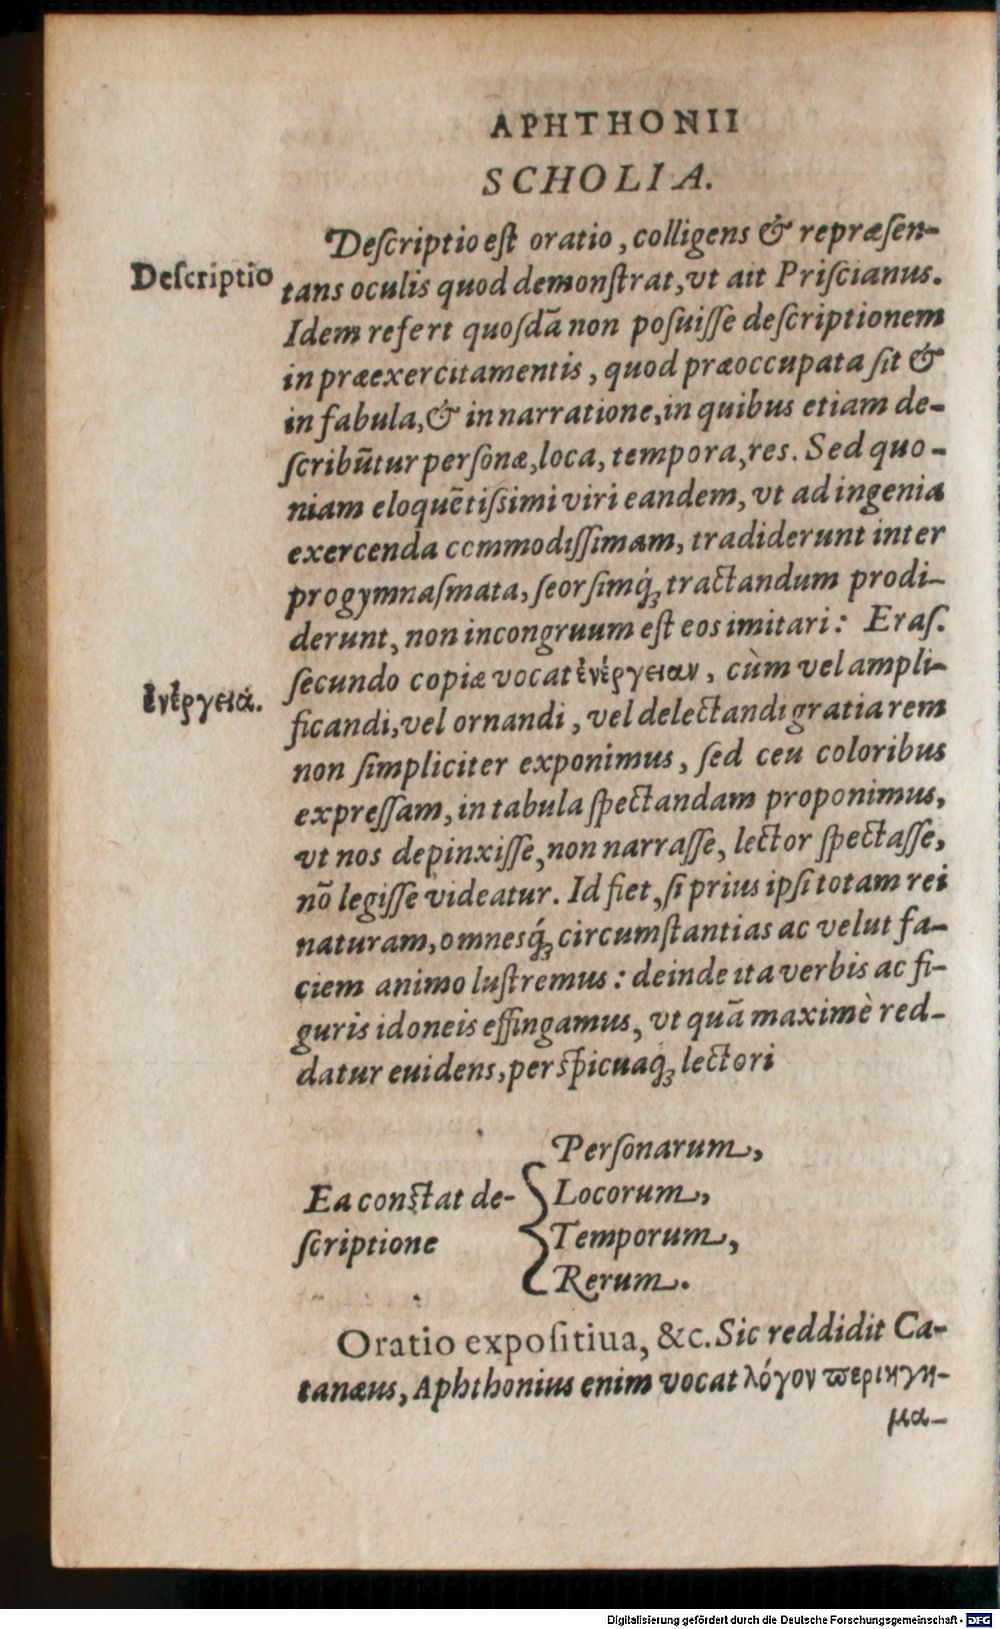 APHTHONII
SCHOLIA.
Deſcriptio eſt oratio, colligens & repræſen-
Deſcriptio
tans oculis quod demonſtrat, vt ait Priſcianus.
Idem refert quoſdā non poſuiſſe deſcriptionem
in præexercitamentis, quod præoccupata ſit &
in fabula, & in narratione, in quibus etiam de-
ſcribūtur perſonæ, loca, tempora, res. Sed quo-
niam eloquētiſsimi viri eandem, vt ad ingenia
exercenda commodiſſimam, tradiderunt inter
progymnaſmata, ſeorſimq́ꝫ tractandum prodi-
derunt, non incongruum eſt eos imitari: Eraſ.
ſecundo copiæ vocat ἐνέργειαν, cùm vel ampli-
ἐνέργειά.
ficandi, vel ornandi, vel delectandi gratia rem
non ſimpliciter exponimus, ſed ceu coloribus
expreſſam, in tabula ſpectandam proponimus,
vt nos depinxiſſe, non narraſſe, lector ſpectaſſe,
nō legiſſe videatur. Id fiet, ſi prius ipſi totam rei
naturam, omnesq́ꝫ circumſtantias ac velut fa-
ciem animo luſtremus: deinde ita verbis ac fi-
guris idoneis effingamus, vt quā maximè red-
datur euidens, perſpicuaq́ꝫ lectori
Ea conſtat de-
ſcriptione
Perſonarum,
Locorum,
Temporum,
Rerum.
Oratio expoſitiua, &c. Sic reddidit Ca-
tanæus, Aphthonius enim vocat λόγον ϖεριηγη-
μα-
Digitalisierung gefördert durch die Deutsche Forschungsgemeinschaft - DFG